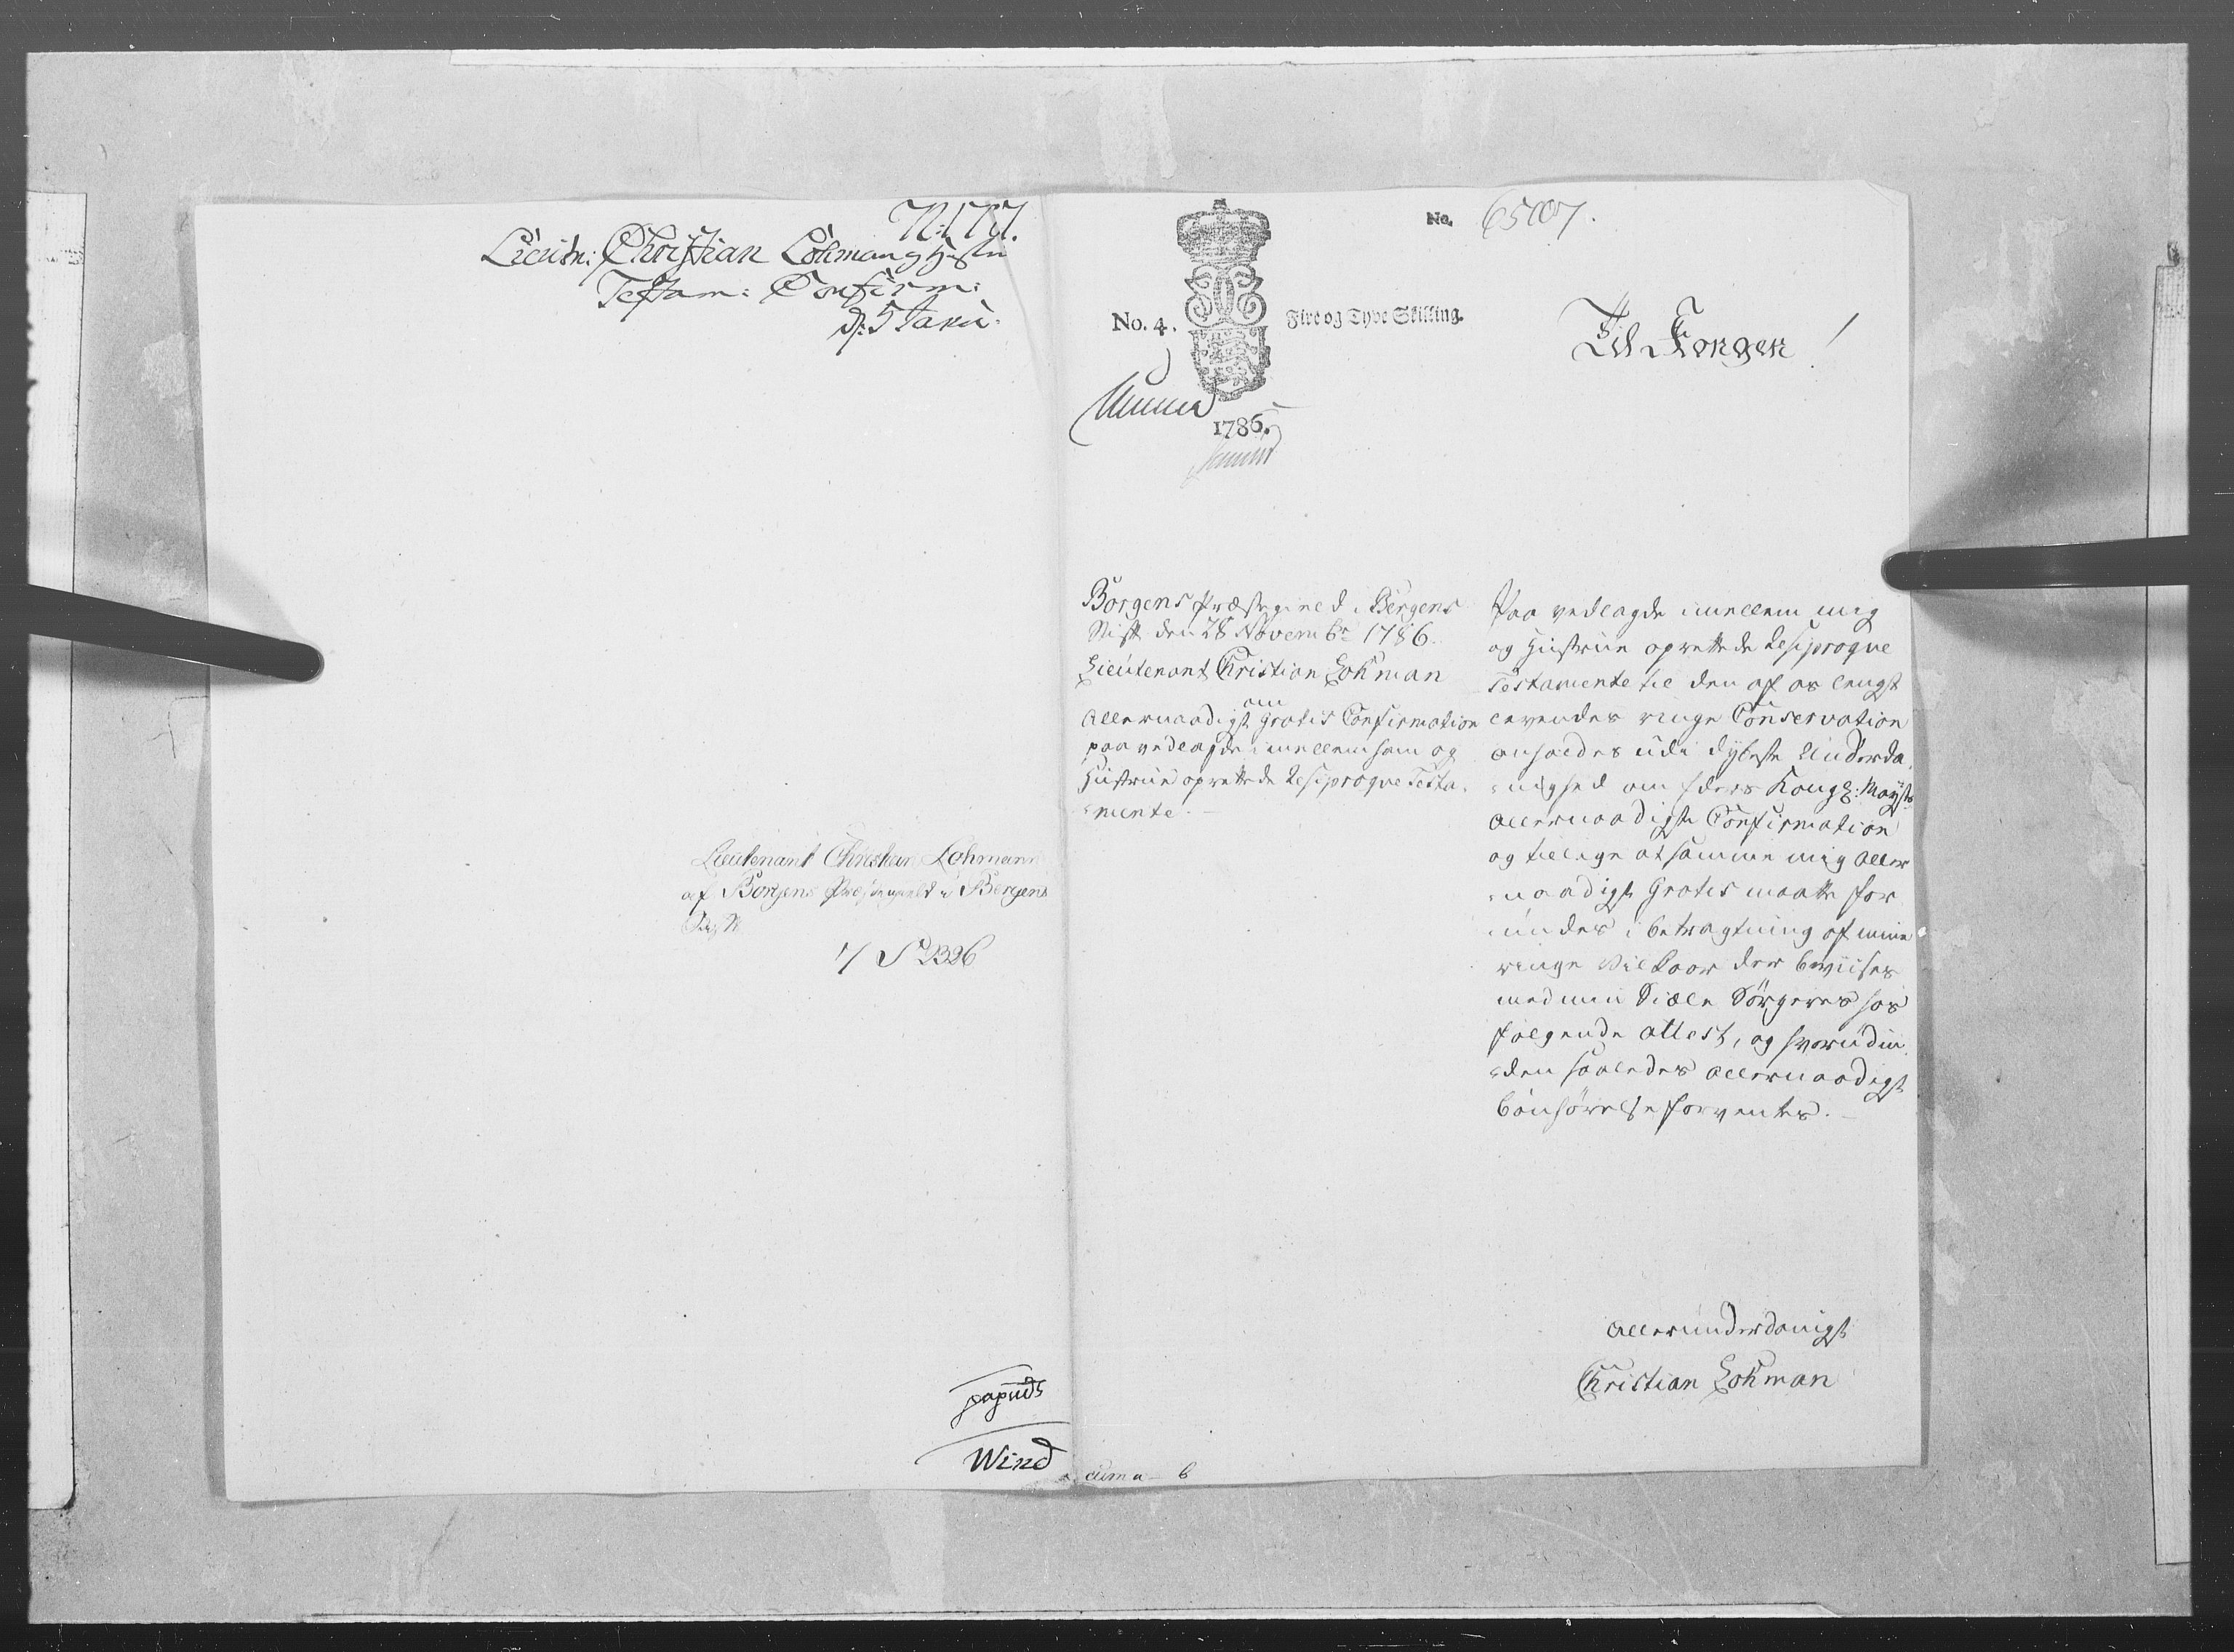 Lieutn: Christian Lohman og Hustru
Testam: Confirm:
d: 5 Janu:
Lieutenant Christian Lohmann
af Borgens Præstegield i Bergens
Stift
7 S 2326
Wind
No. 65007.
No. 4. Fire og Tyve Skilling.
1786.
Til Kongen!
Borgens Præstegield i Bergens
Stift den 28 Novembr 1786.
Lieutenant Christian Lohman
om
Allernaadigst gratis Confirmation
paa vedlagde imellem ham og
Hustrue oprettede Resiproque Testa-
-mente.
Paa vedlagde imellem mig
og Hustrue oprettede Resiproque
Testamente til den af os lengst
levendes ringe Conservation
anholdes udi dybeste Underda-
-nighed om Eders Kongl: Mayts
Allernaadigste Confirmation
og tillige at samme mig Aller-
-naadigst Gratis maatte for
undes i betragtning af mine
ringe Vilkaar der beviises
med min Siæle Sörgeres hos
fölgende Attest, og hvorudin
-den saaledes Allernaadigst
bönhörelse forventes.
Allerunderdanigst
Christian Lohman